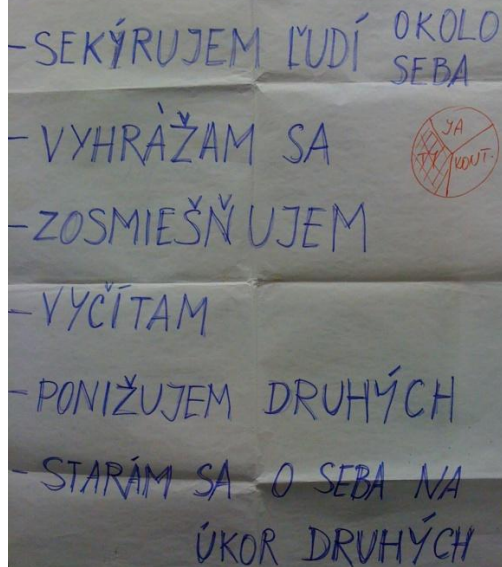 - SEKÝRUJEM ĽUDÍ OKOLO
SEBA
- VYHRÀŽAM SA
JA
TY KONT.
- ZOSMIEŠŇUJEM
- VYČÍTAM
- PONIŽUJEM DRUHÝCH
- STARÁM SA O SEBA NA
ÚKOR DRUHÝCH